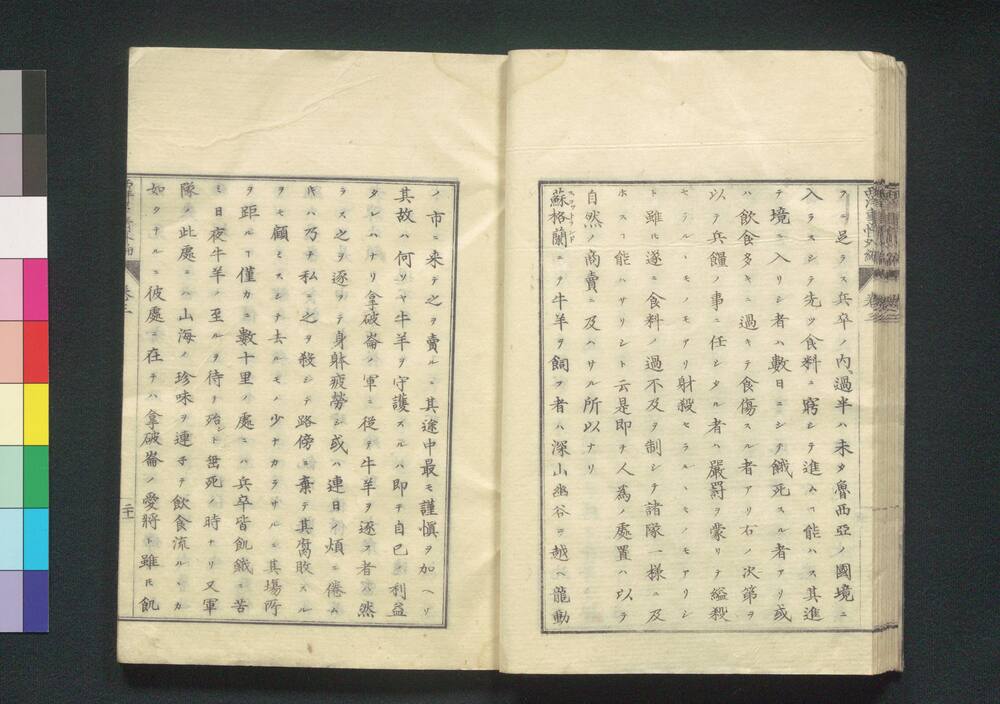 ヲニ足ラス兵卒ノ内過半ハ未タ魯西亞ノ國境ニ
入ラスシテ先ツ食料ニ窮シテ進ムヿ能ハス其進
テ境ニ入リシ者ハ數日ニシテ餓死スル者アリ或
ハ飲食多キニ過キテ食傷スル者アリ右ノ次第ヲ
以テ兵饟ノ事ニ任シタル者ハ嚴罰ヲ蒙リテ縊殺
セラルヽモノモアリ射殺セラルヽモノモアリシ
ト雖ㇳモ遂ニ食料ノ過不及ヲ制シテ諸隊一樣ニ及
ホスヿ能ハサリシト云是即チ人為ノ處置ハ以テ
自然ノ商賣ニ及ハサル所以ナリ
蘇格蘭ニテ牛羊ヲ飼フ者ハ深山幽谷ヲ越ヘ龍動
ノ市ニ来テ之ヲ賣ルニ其途中最モ謹慎ヲ加ヘリ
其故ハ何ソヤ牛羊ヲ守護スルハ即チ自己ノ利益
タレハナリ拿破崙ノ軍ニ從テ牛羊ヲ逐フ者ハ然
ラス之ヲ逐フテ身躰疲勞シ或ハ連日ノ煩ニ倦ム
𪜈ハ乃チ私ニ之ヲ殺シテ路傍ニ棄テ其腐敗スル
ヲモ顧ミスシテ去ルモノ少ナカラサルニ其場所
ヲ距ルヿ僅カニ數十里ノ處ニハ兵卒皆飢餓ニ苦
ミ日夜牛羊ノ至ルヲ待リ殆ント垂死ノ時ナリ又軍
隊ノ此處ニハ山海ノ珍味ヲ連子テ飲食流ルヽカ
如クナルニ彼處ニ在テハ拿破崙ノ愛將ト雖𪜈飢
卷三
二十